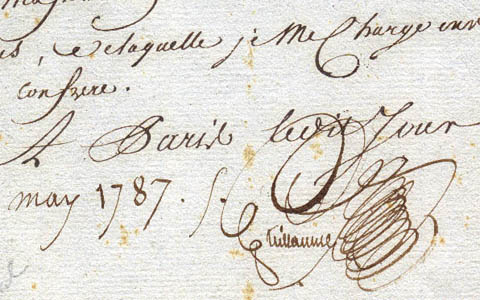 , de laquelle je me Charge en
confrere.
A Paris ledit Jour
may 1787.
Guillaume